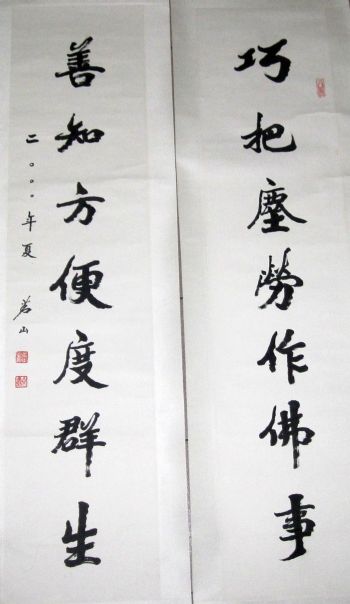 巧把塵勞作佛事
善知方便度群生
二○○○年夏 若山